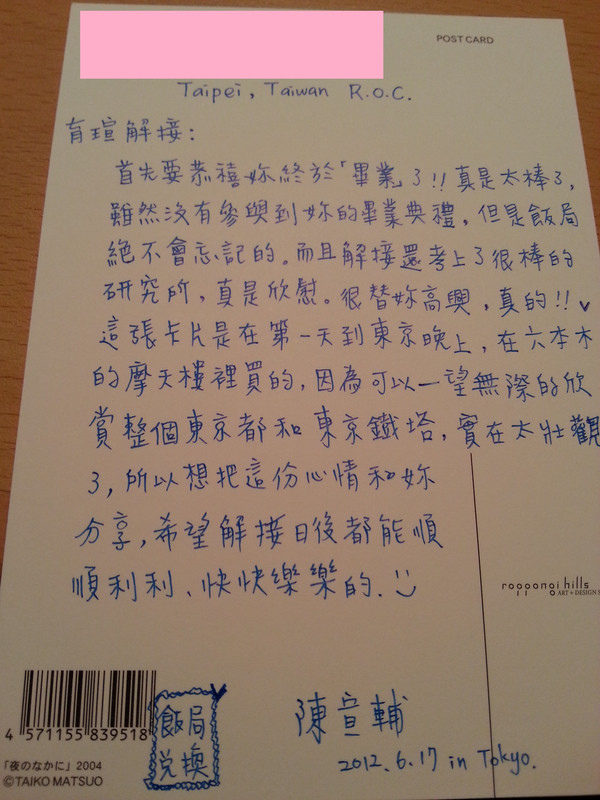 POST CARD
Taipei, Taiwan R.O.C.
育瑄解接:
首先要恭禧妳終於「畢業」了!!真是太棒了,
雖然沒有參與到妳的畢業典禮,但是飯局
絕不會忘記的。而且解接還考上了很棒的
研究所,真是欣慰。很替妳高興,真的!!♥
這張卡片是在第一天到東京晚上,在六本木
的摩天樓裡買的,因為可以一望無際的欣
賞整個東京都和東京鐵塔,實在太壯觀
了,所以想把這份心情和妳
分享,希望解接日後都能順
順利利、快快樂樂的.
roppongi hills
ART + DESIGN
4 571155 839518
飯局
兌換
陳宣輔
2012.6.17 in Tokyo.
「夜のなかに」2004
©TAIKO MATSUO